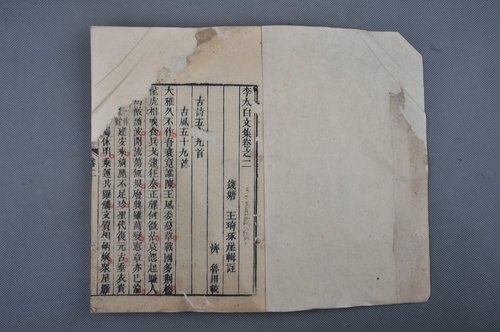 李太白文集卷之二
錢塘 王琦琢崖輯註
濟魯川較
古詩五 九首
古風五十九首
大雅久不作吾衰竟誰陳王風委蔓草戰國多荆榛
龍虎相啖食兵戈逮狂秦正聲何微茫哀怨起騷人
激頹波開流蕩無垠廢興雖萬變憲章亦已淪
建安來綺麗不足珍聖代復元古垂衣貴
休明乘運共躍鱗文質相炳煥衆星羅